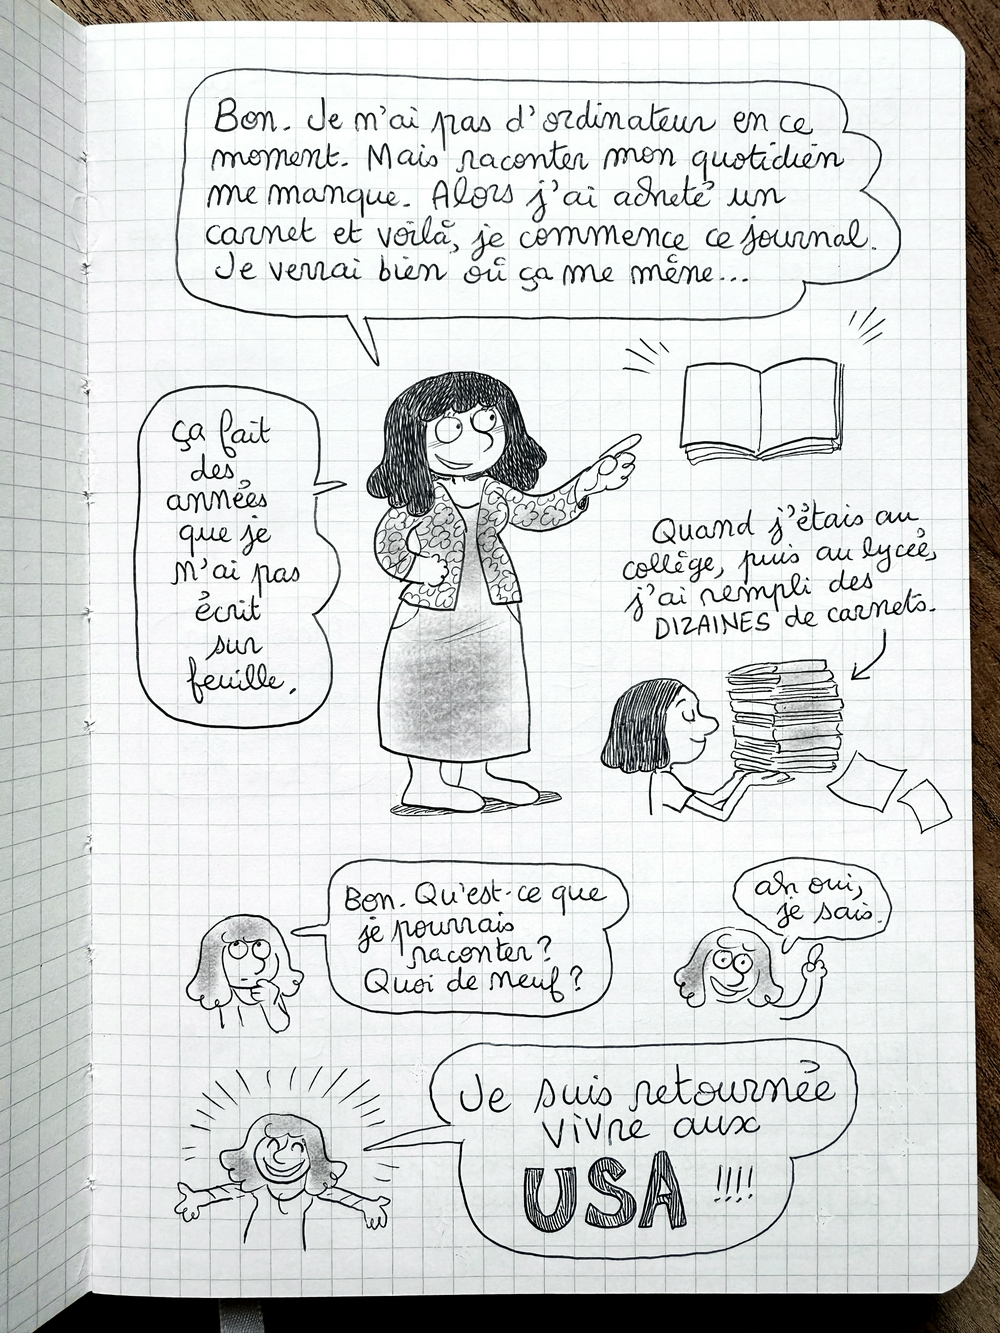 Bon. Je m'ai pas d'ordinateur en ce
moment. Mais raconter mon quotidien
me manque. Alors j'ai acheté un
carnet et voilà, je commence ce journal.
Je verrai bien où ça me mène...
ça fait
des
années
que je
m'ai pas
écrit
sur
feuille.
Quand j'étais au
collège, puis au lycée,
j'ai rempli des
DIZAINES de carnets.
Bon. Qu'est-ce que
je pourrais
raconter?
Quoi de neuf?
ah oui,
je sais.
Je suis retournée
vivre aux
USA !!!!